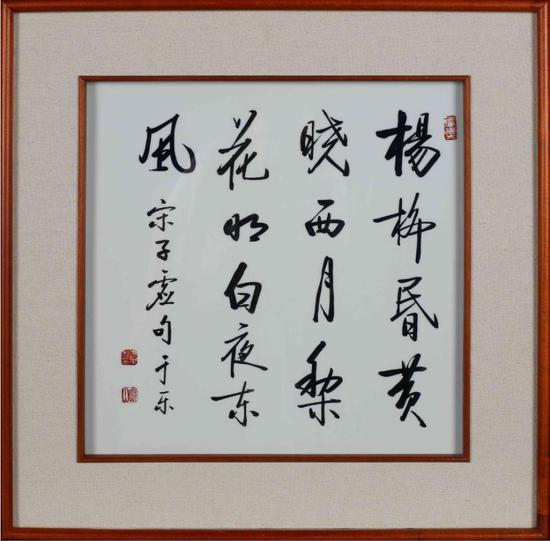 楊柳昏黄
晓西月梨
花明白夜东
風
宋子虚句于乐